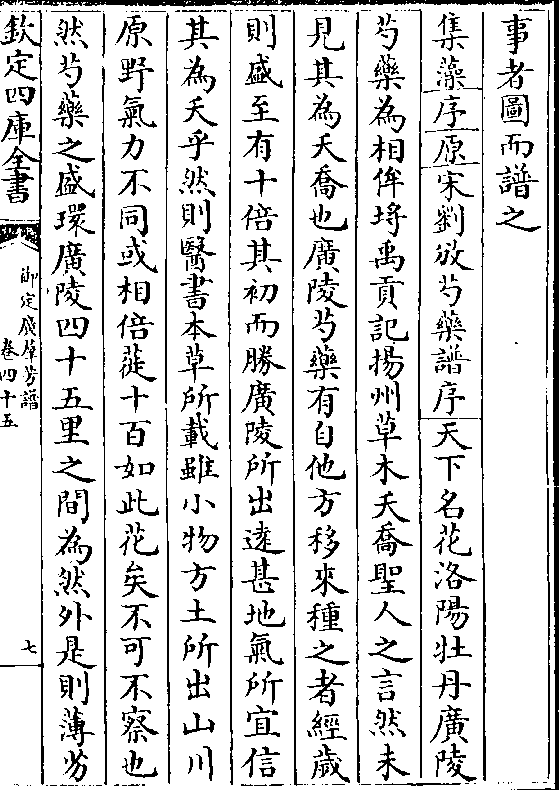 事者圖而譜之
集藻序原宋劉攽芍藥譜序天下名花洛陽牡丹廣陵
芍藥為相侔埒禹貢記揚州草木夭喬聖人之言然未
見其為夭喬也廣陵芍藥有自他方移來種之者經歲
則盛至有十倍其初而勝廣陵所出逺甚地氣所宜信
其為夭乎然則醫書本草所載雖小物方土所出山川
原野氣力不同或相倍蓰十百如此花矣不可不察也
然芍藥之盛環廣陵四十五里之間為然外是則薄劣
欽定四庫全書
御定廣羣芳譜
卷四十五
七